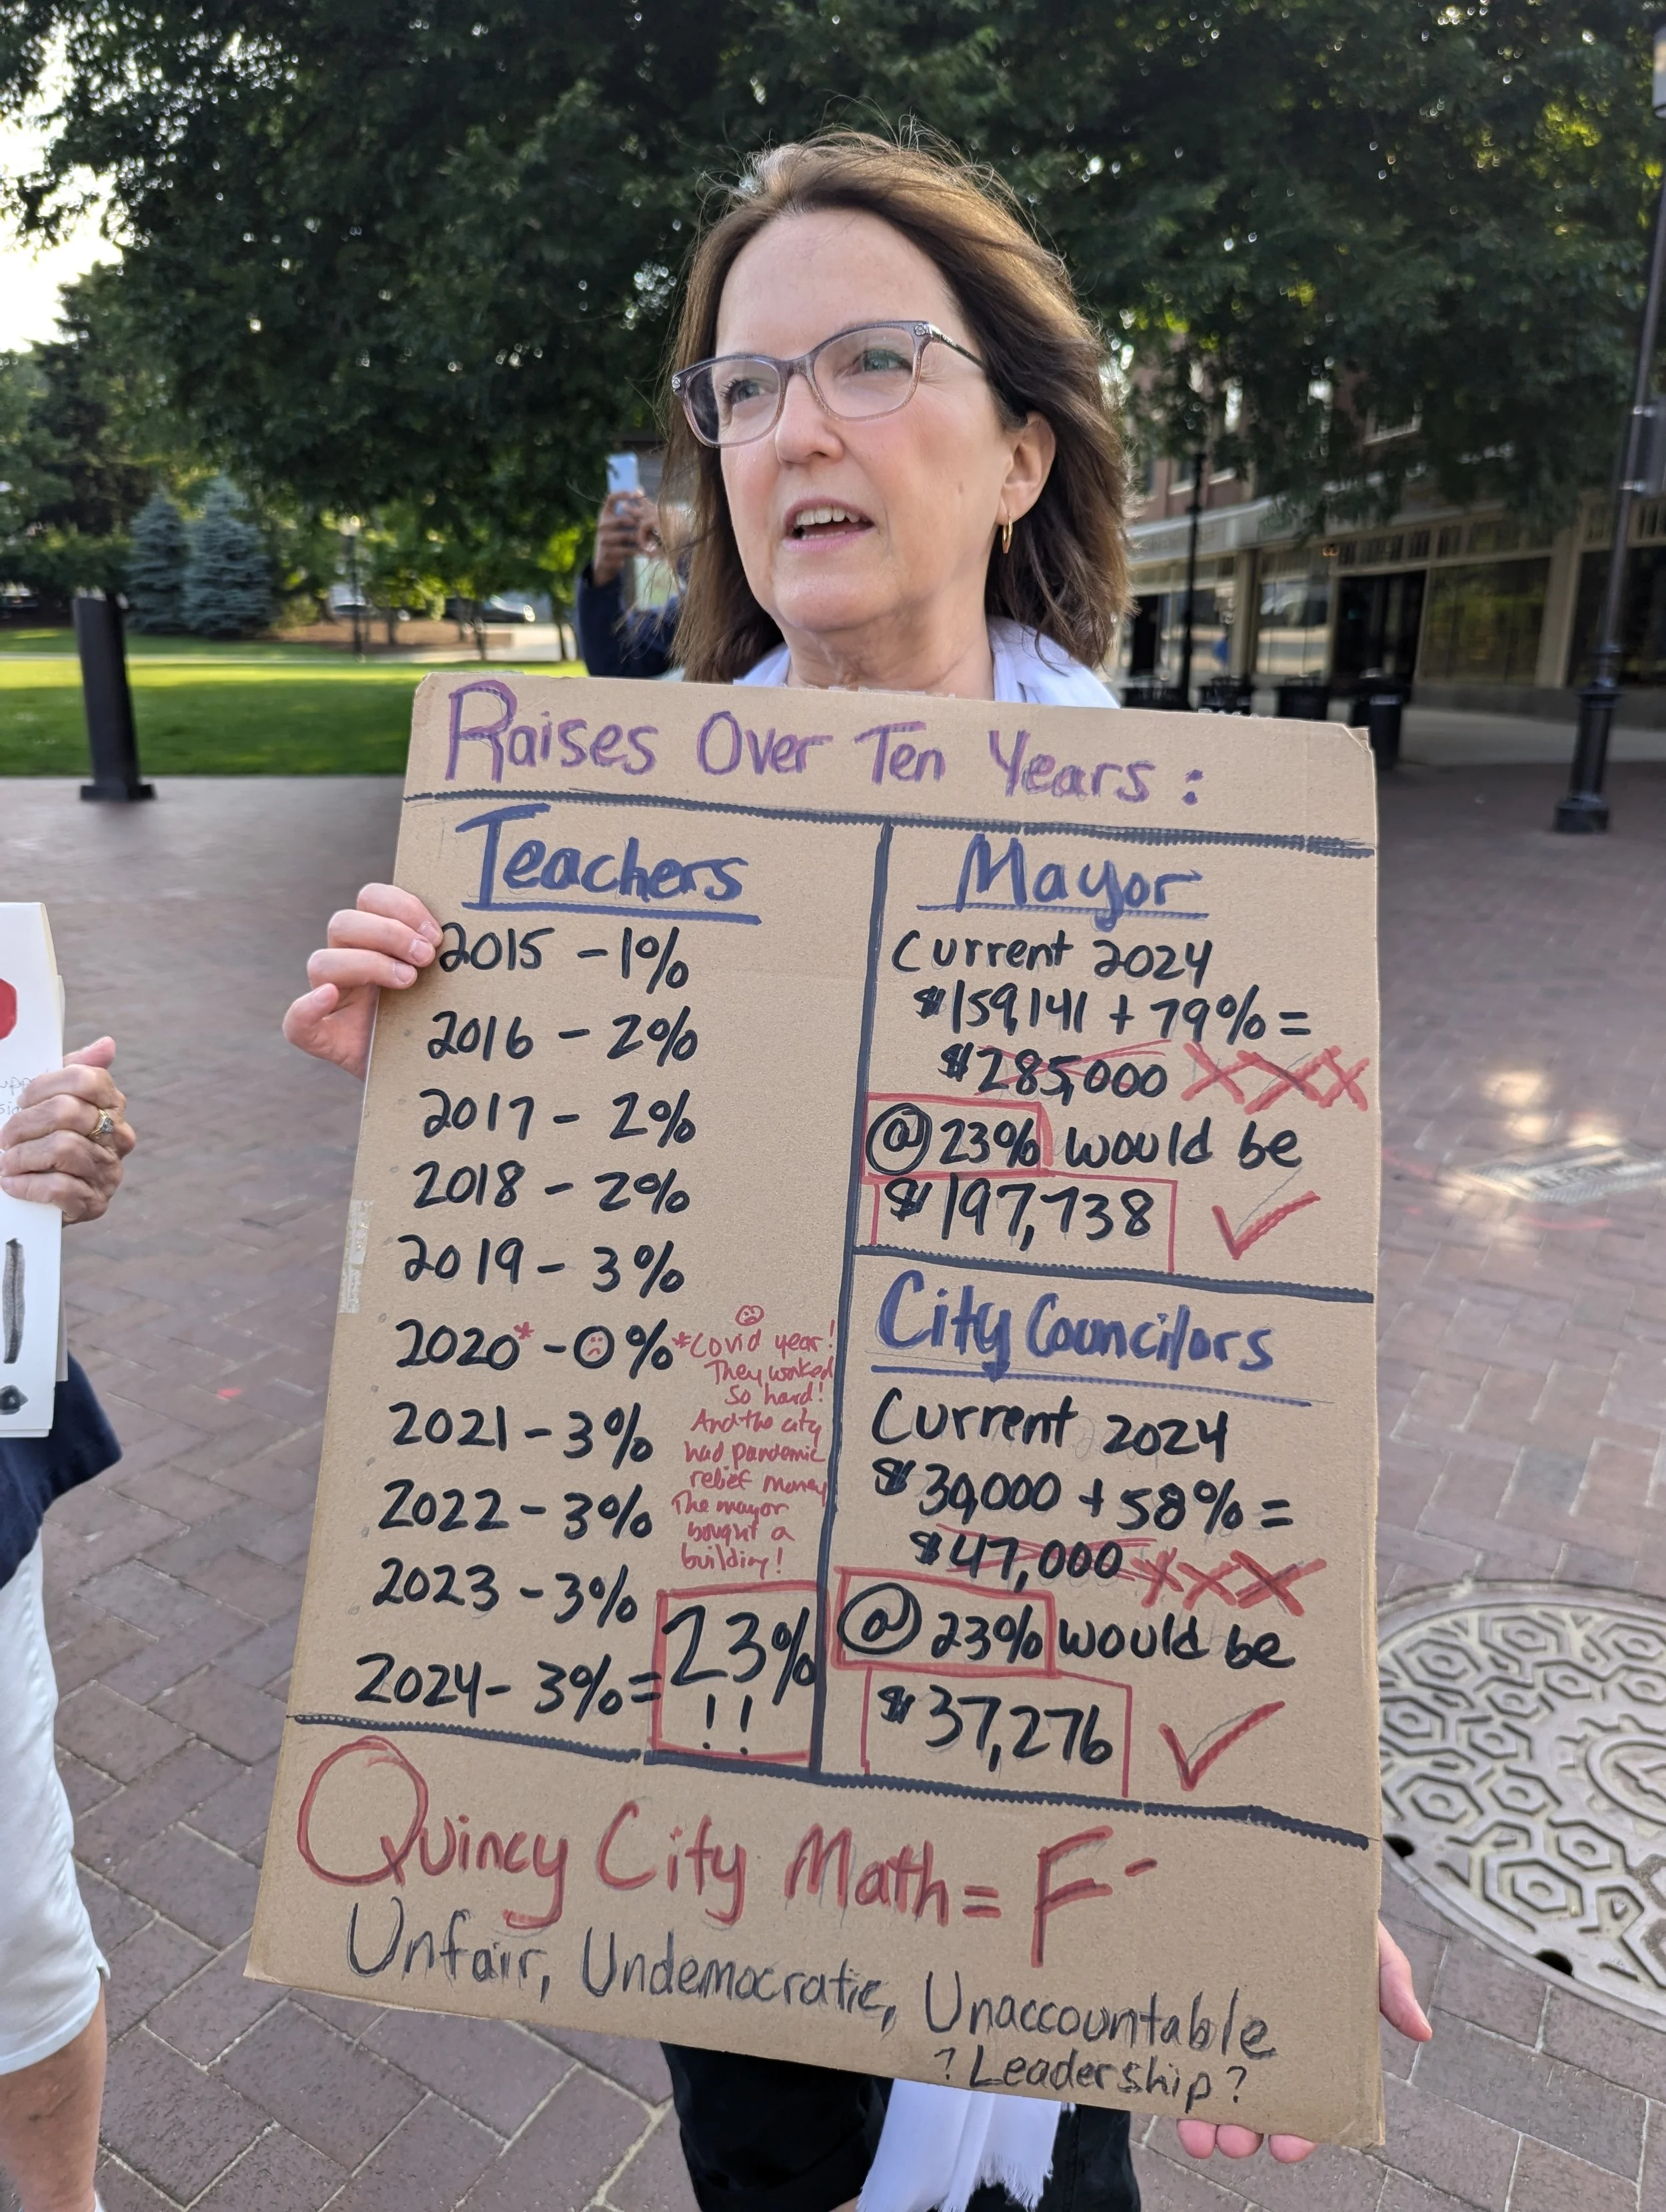 Raises Over Ten Years:
Teachers
2015 - 1%
2016 - 2%
2017 - 2%
2018 - 2%
2019 - 3%
2020* - 0%
*Covid year!
They worked
So hard!
And the city
had pandemic
relief money
The mayor
bought a
building!
2021 - 3%
2022 - 3%
2023 - 3%
2024 - 3% = 23%
!!
Mayor
Current 2024
$159,141 + 79% =
$285,000 XXX
@ 23% would be
$197,738
City Councilors
Current 2024
$30,000 + 58% =
$47,000 XXX
@ 23% would be
$37,276
Quincy City Math = F-
Unfair, Undemocratic, Unaccountable
? Leadership?